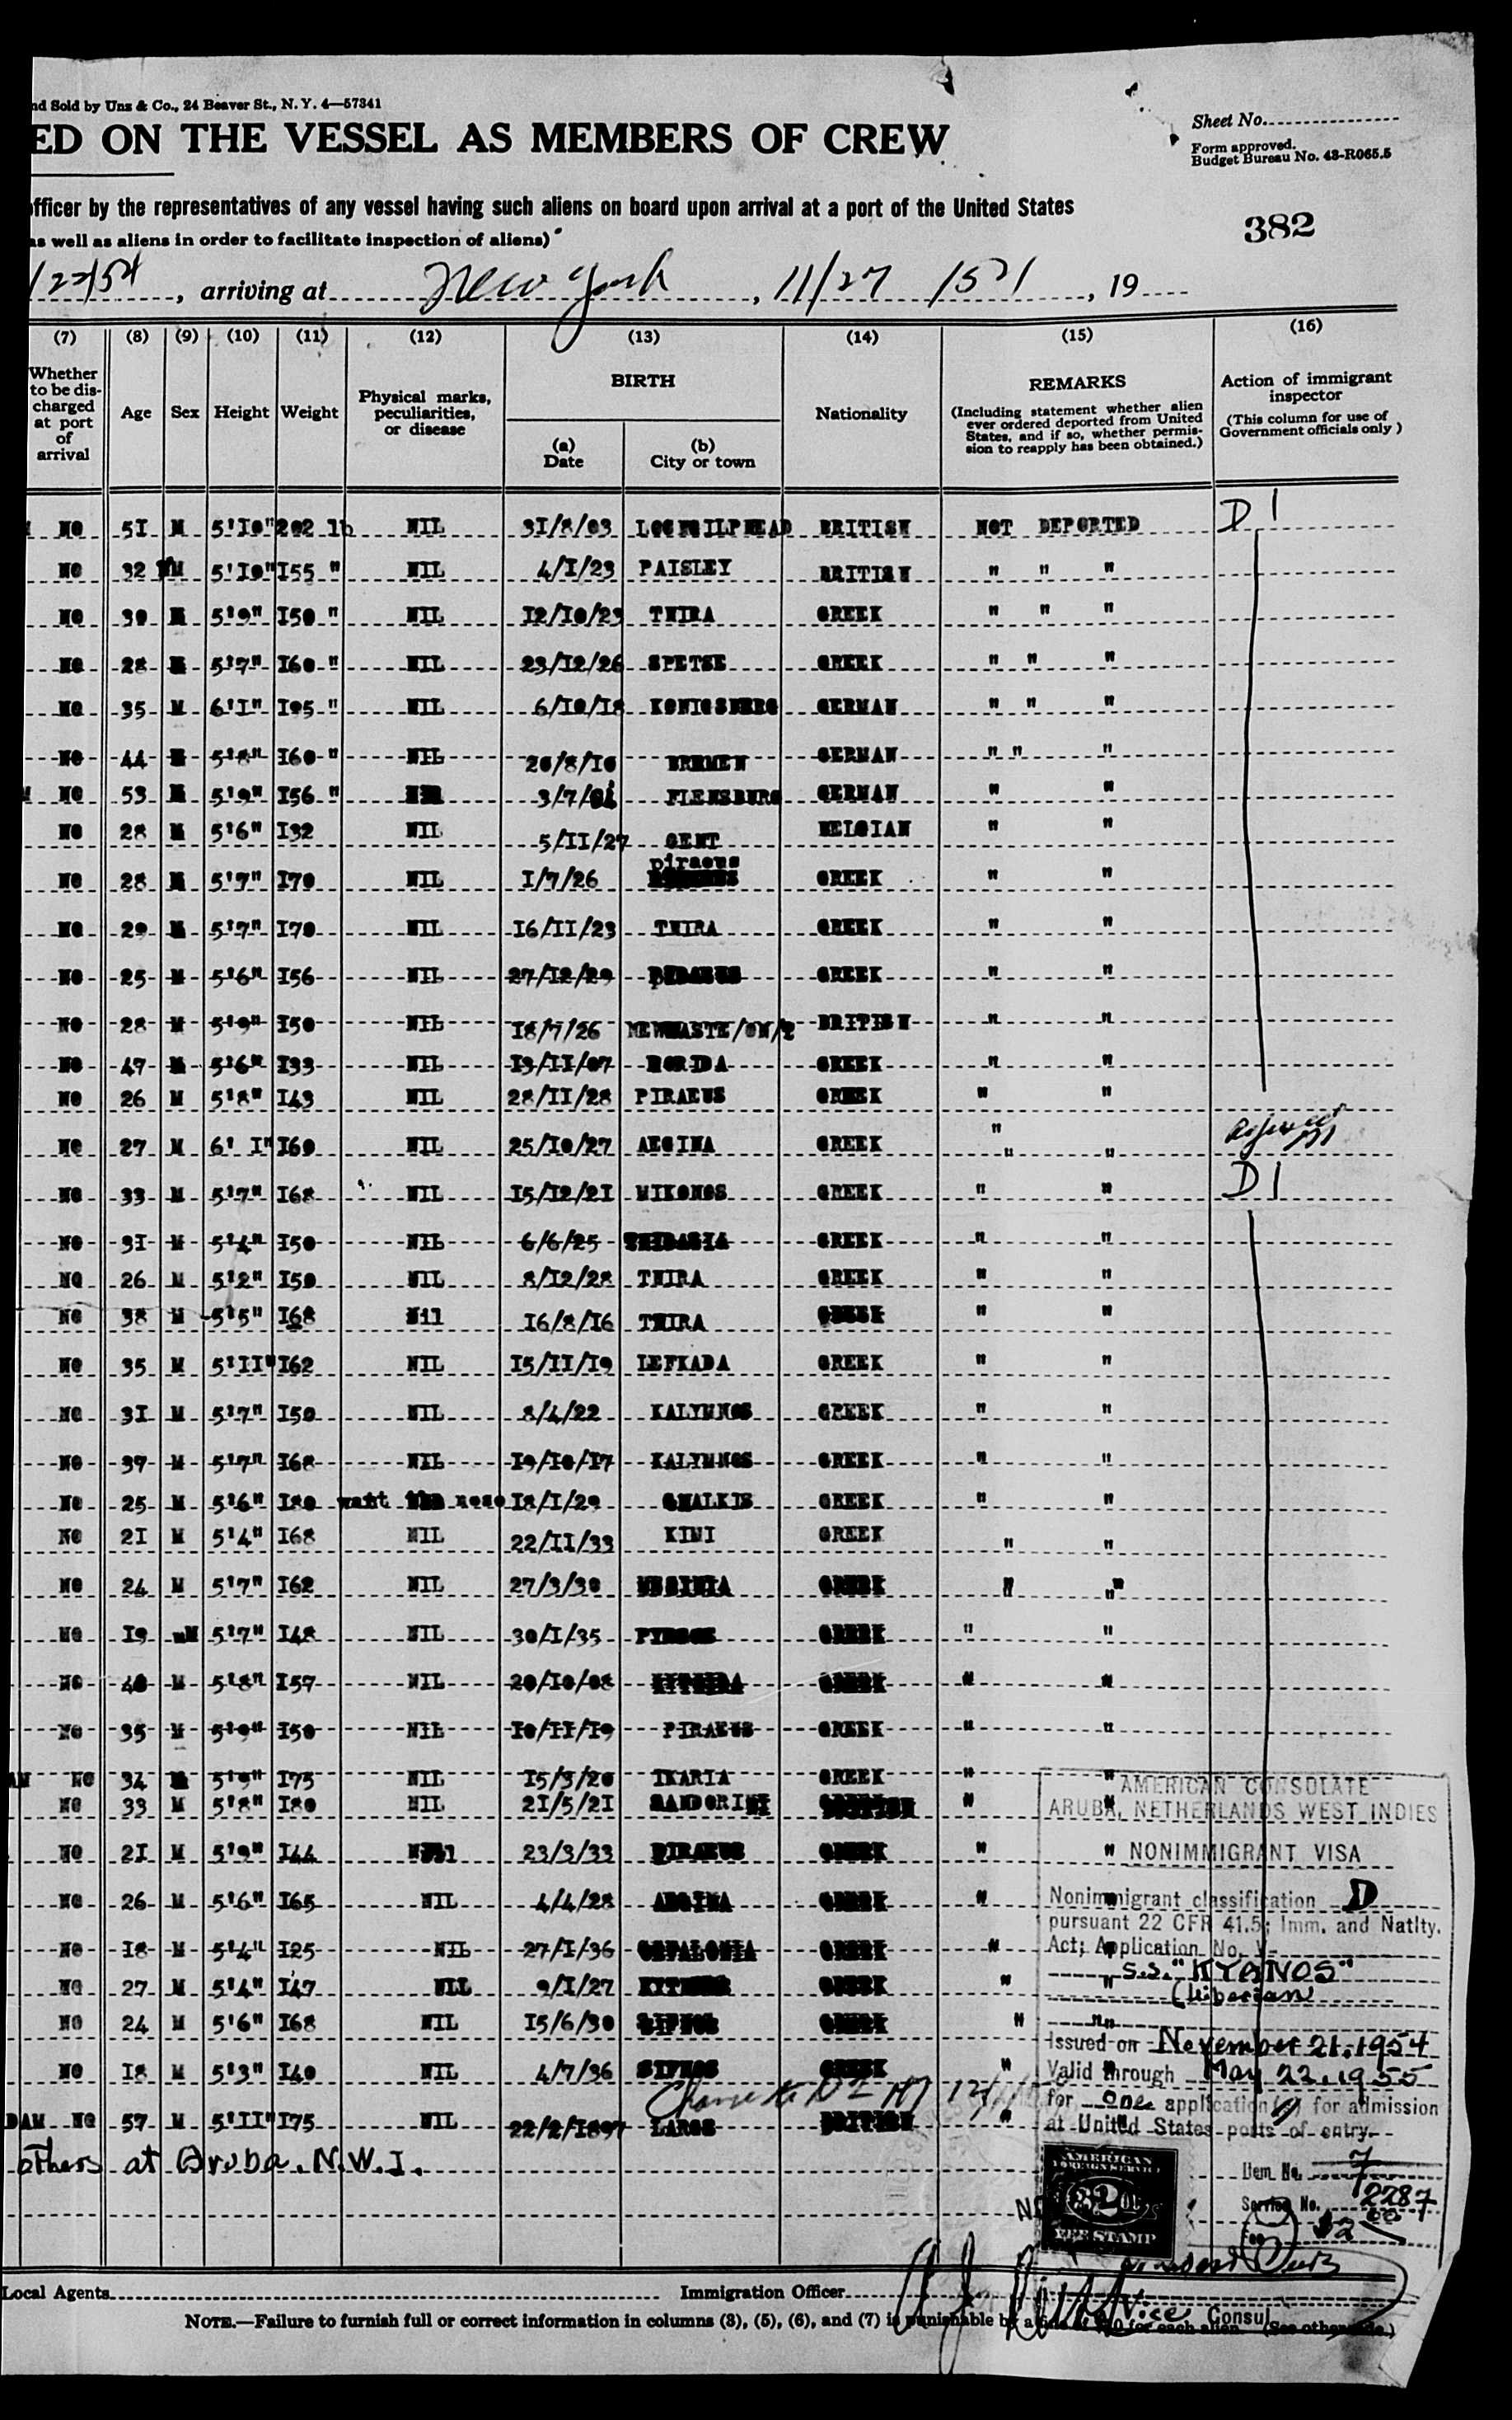 nd Sold by Unz & Co., 24 Beaver St., N. Y. 4—57341
ED ON THE VESSEL AS MEMBERS OF CREW
Sheet No.
Form approved.
Budget Bureau No. 43-R065.5
officer by the representatives of any vessel having such aliens on board upon arrival at a port of the United States
as well as aliens in order to facilitate inspection of aliens)
382
/22/54, arriving at New York, 11/27 /51, 19
(7) (8) (9) (10) (11) (12) (13) (14) (15) (16)
Whether to be discharged at port of arrival
Age Sex Height Weight
Physical marks, peculiarities, or disease
BIRTH
(a) Date
(b) City or town
Nationality
REMARKS
(Including statement whether alien ever ordered deported from United States, and if so, whether permission to reapply has been obtained.)
Action of immigrant inspector
(This column for use of Government officials only)
NO 51 M 5'10" 202 lb NIL 31/8/03 LOCHGILPHEAD BRITISH NOT DEPORTED D 1
NO 32 M 5'10" 155 " NIL 4/1/23 PAISLEY BRITISH " " "
NO 30 M 5'9" 150 " NIL 12/10/23 THIRA GREEK " " "
NO 28 M 5'7" 160 " NIL 23/12/26 SPETSE GREEK " " "
NO 35 M 6'1" 195 " NIL 6/10/18 KONIGSBERG GERMAN " " "
NO 44 M 5'8" 160 " NIL 20/8/10 BREMEN GERMAN " " "
NO 53 M 5'9" 156 " NIL 3/7/01 FLENSBURG GERMAN " "
NO 28 M 5'6" 132 NIL 5/11/27 GENT BELGIAN " "
NO 28 M 5'7" 170 NIL 1/7/26 piraeus GREEK " "
NO 29 M 5'7" 170 NIL 16/11/23 THIRA GREEK " "
NO 25 M 5'6" 156 NIL 27/12/29 PIRAEUS GREEK " "
NO 28 M 5'9" 150 NIL 18/7/26 NEWCASTE/ON/T BRITISH " "
NO 47 M 5'6" 133 NIL 13/11/07 GREEK " "
NO 26 M 5'8" 143 NIL 28/11/28 PIRAEUS GREEK " "
NO 27 M 6' 1" 160 NIL 25/10/27 AEGINA GREEK " " "
NO 33 M 5'7" 168 NIL 15/12/21 MIKONOS GREEK " " D 1
NO 31 M 5'4" 150 NIL 6/6/25 THIRASIA GREEK " "
NO 26 M 5'2" 150 NIL 8/12/28 THIRA GREEK " "
NO 38 M 5'5" 168 Nil 16/8/16 THIRA GREEK " "
NO 35 M 5'11" 162 NIL 15/11/19 LEFKADA GREEK " "
NO 31 M 5'7" 150 NIL 8/4/22 KALYMNOS GREEK " "
NO 37 M 5'7" 168 NIL 19/10/17 KALYMNOS GREEK " "
NO 25 M 5'6" 180 nose 18/1/29 CHALKIS GREEK " "
NO 21 M 5'4" 168 NIL 22/11/33 KIMI GREEK " "
NO 24 M 5'7" 162 NIL 27/3/30 MESINIA GREEK " "
NO 19 M 5'7" 148 NIL 30/1/35 PYRGOS GREEK " "
NO 40 M 5'8" 157 NIL 20/10/08 GREEK " "
NO 35 M 5'9" 150 NIL 10/11/19 PIRAEUS GREEK " "
AM NO 34 M 5'9" 175 NIL 15/3/20 IKARIA GREEK " "
NO 33 M 5'8" 180 NIL 21/5/21 SANDORINI " "
NO 21 M 5'9" 144 23/3/33 PIRAEUS GREEK " "
NO 26 M 5'6" 165 NIL 4/4/28 AEGINA GREEK "
NO 18 M 5'4" 125 NIL 27/1/36 CEFALONIA GREEK "
NO 27 M 5'4" 147 NIL 9/1/27 GREEK "
NO 24 M 5'6" 168 NIL 15/6/30 SIFNOS GREEK "
NO 18 M 5'3" 140 NIL 4/7/36 SIFNOS GREEK "
DAM NO 57 M 5'11" 175 NIL 22/2/1897 LARGS BRITISH "
others at Aruba. N.W.I.
AMERICAN CONSULATE
ARUBA, NETHERLANDS WEST INDIES
NONIMMIGRANT VISA
Nonimmigrant classification D
pursuant 22 CFR 41.5; Imm. and Natlty.
Act; Application No. V-
S.S. "KYANOS"
(Liberian
Issued on November 21, 1954
Valid through May 22, 1955
for one application(s) for admission
at United States ports of entry.
Item No. 7
Service No. 2287
Fee $2
AMERICAN
FOREIGN SERVICE
$2
FEE STAMP
Vice Consul
Local Agents Immigration Officer
NOTE.—Failure to furnish full or correct information in columns (3), (5), (6), and (7) is punishable by a fine of $10 for each alien. (See other side.)